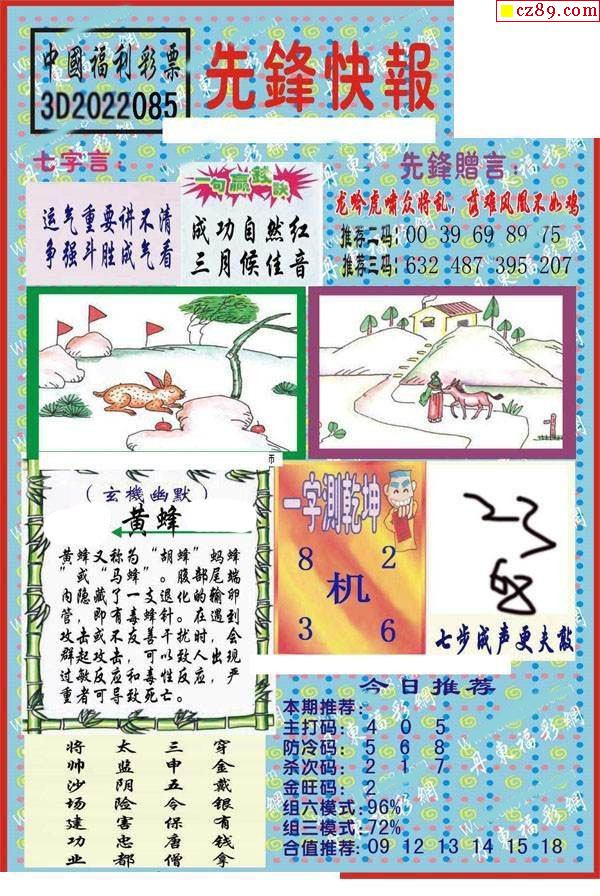 cz89.com
中國福利彩票
3D2022085
先鋒快報
七字言：
运气重要讲不清
争强斗胜成气看
一句赢錢詇
成功自然红
三月候佳音
先鋒贈言：
龙吟虎啸众将乱，落难凤凰不如鸡
推荐二码：00 39 69 89 75
推荐三码：632 487 395 207
（玄機幽默）
黄蜂
黄蜂又称为“胡蜂”蚂蜂
”或“马蜂”。腹部尾端
内隐藏了一支退化的输卵
管，即有毒蜂针。在遇到
攻击或不友善干扰时，会
群起攻击，可以致人出现
过敏反应和毒性反应，严
重者可导致死亡。
一字测乾坤
8 2
机
3 6
七步成声更夫敲
将 太 三 穿
帅 监 申 金
沙 阴 五 戴
场 险 令 银
建 害 保 有
功 忠 唐 钱
业 都 僧 拿
今日推荐
本期推荐：
主打码：4 0 5
防冷码：5 6 8
杀次码：2 1 7
金旺码：2
组六模式：96%
组三模式：72%
合值推荐：09 12 13 14 15 18
丹東福彩網